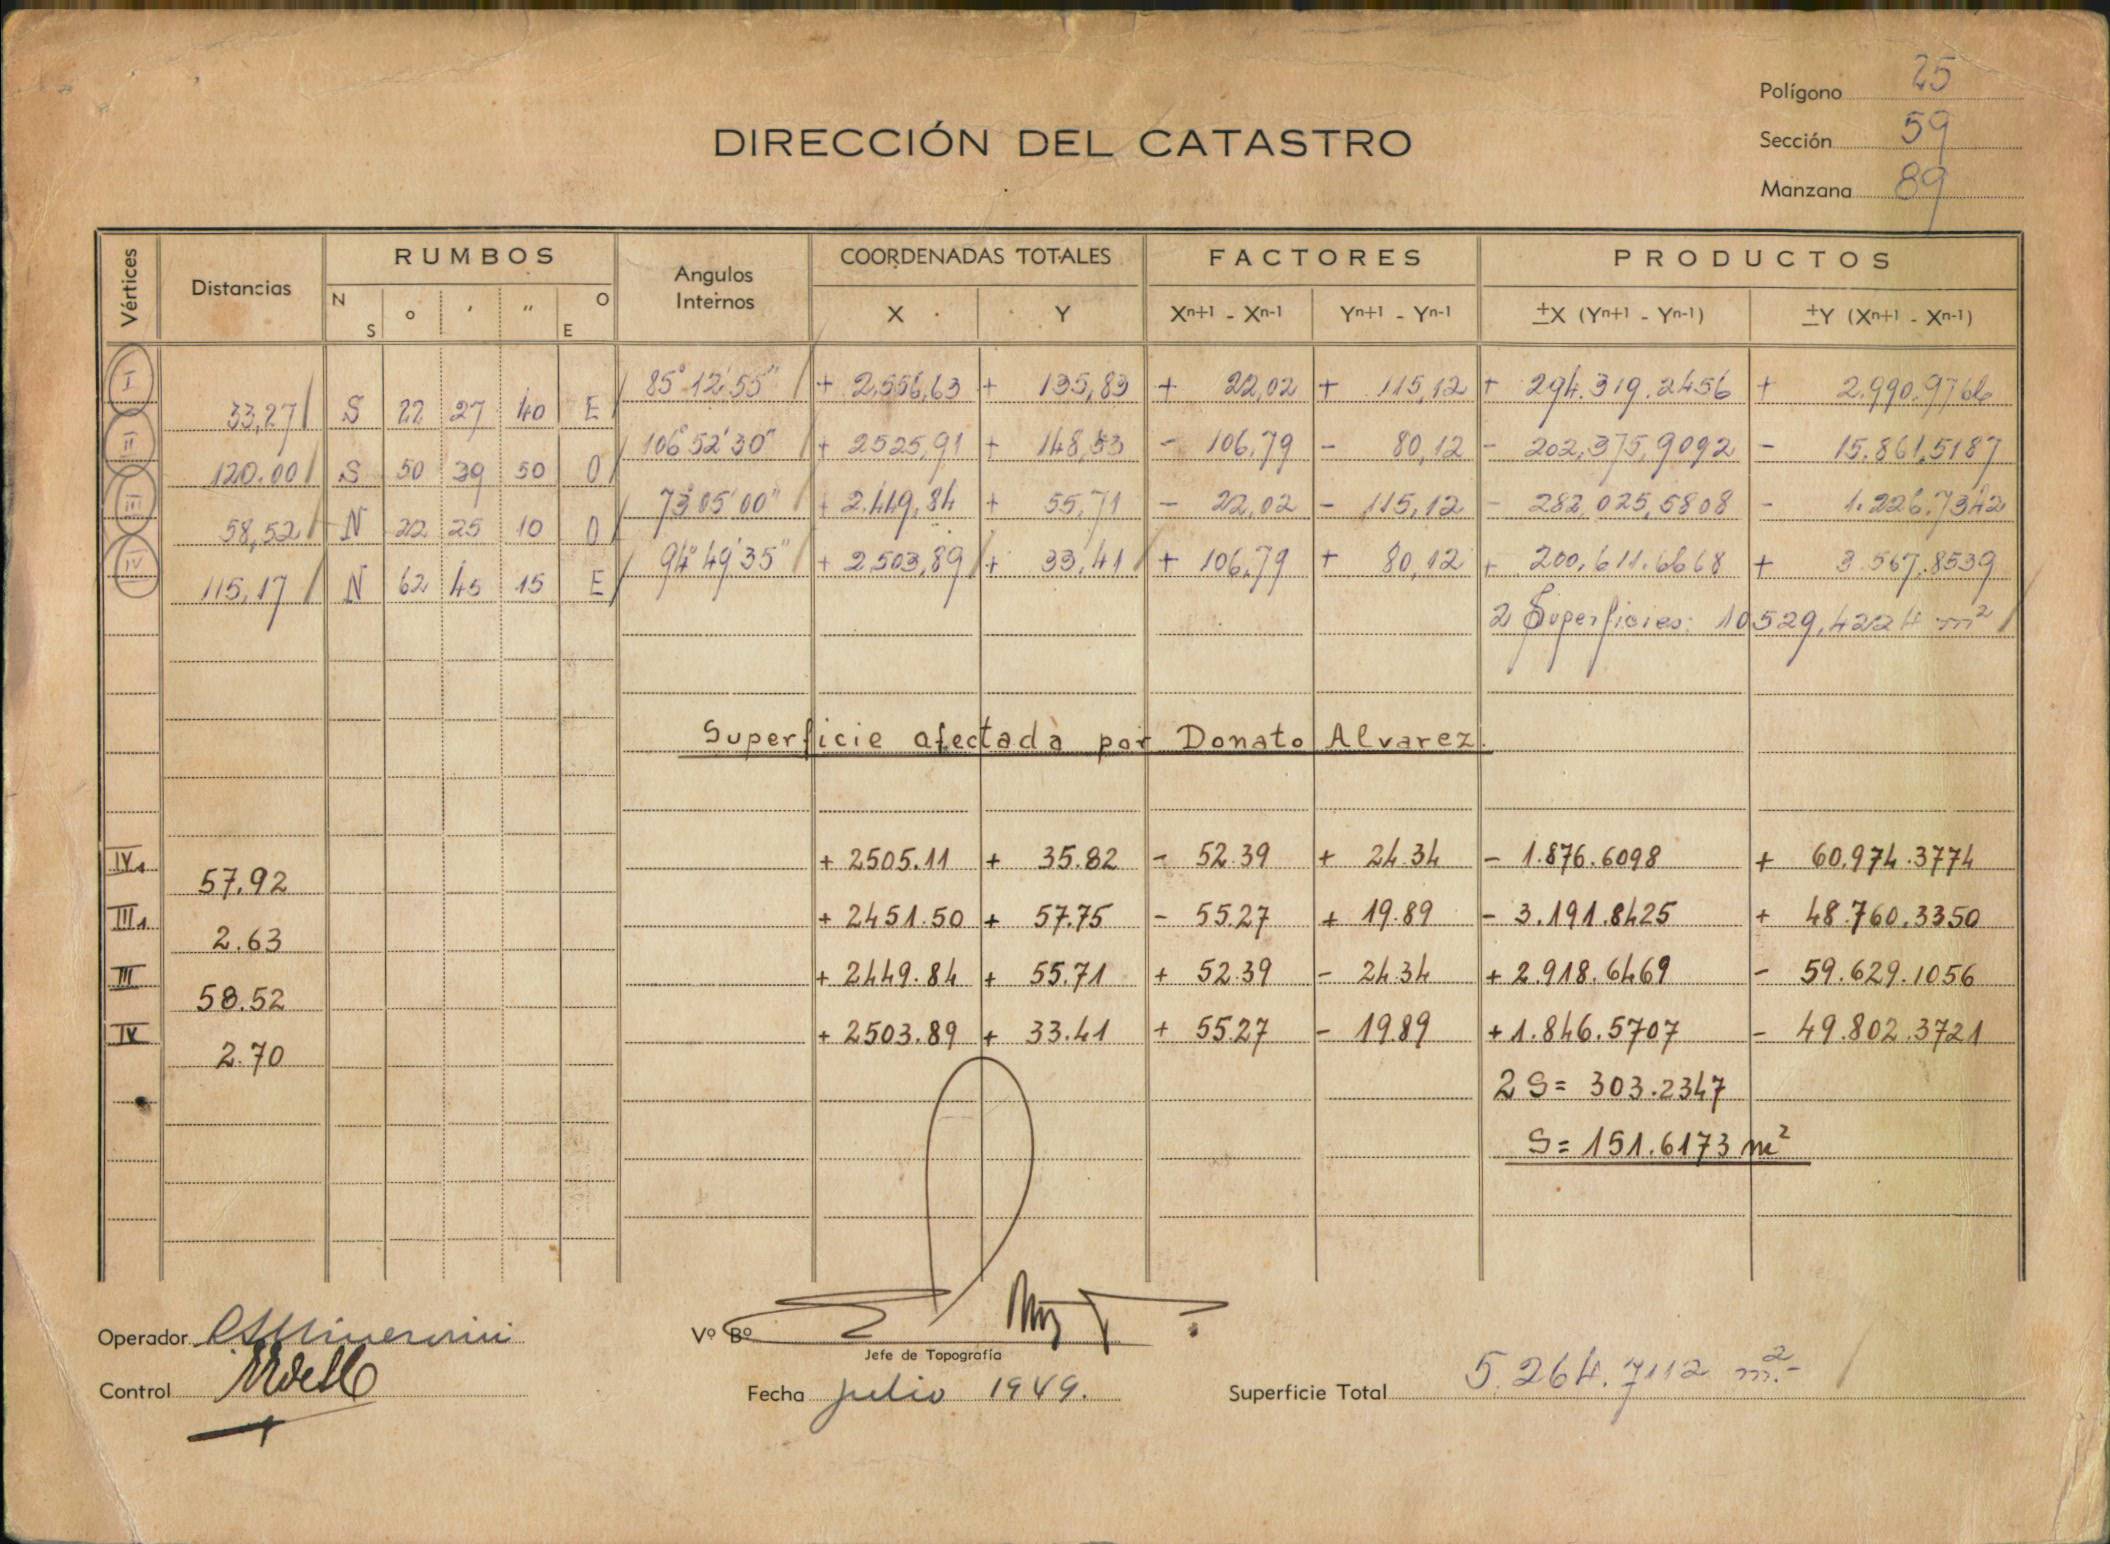 Polígono 25
DIRECCIÓN DEL CATASTRO
Sección 59
Manzana 89
Vértices Distancias RUMBOS Angulos Internos COORDENADAS TOTALES FACTORES PRODUCTOS
N S ° ' " O E X Y Xn+1 - Xn-1 Yn+1 - Yn-1 ±X (Yn+1 - Yn-1) ±Y (Xn+1 - Xn-1)
I 85° 12' 55" + 2,556,63 + 135,83 + 22,02 + 115,12 + 294.319.2456 + 2.990.9766
33,27 S 22 27 40 E
II 106° 52' 30" + 2525,91 + 148,53 - 106,79 - 80,12 - 202,375,9092 - 15.861,5187
120.00 S 50 39 50 O
III 73° 05' 00" + 2.449,84 + 55,71 - 22,02 - 115,12 - 282,025,5808 - 1.226.7342
58,52 N 22 25 10 O
IV 94° 49' 35" + 2.503,89 + 33,41 + 106,79 + 80,12 + 200,611.6668 + 3.567.8539
115,17 N 62 45 15 E
2 Superficies: 10529,4224 m²
Superficie afectada por Donato Alvarez.
IV1 + 2505.11 + 35.82 - 52.39 + 24.34 - 1.876.6098 + 60.974.3774
57.92
III1 + 2451.50 + 57.75 - 55.27 + 19.89 - 3.191.8425 + 48.760.3350
2.63
III + 2449.84 + 55.71 + 52.39 - 24.34 + 2.918.6469 - 59.629.1056
58.52
IV + 2503.89 + 33.41 + 55.27 - 19.89 + 1.846.5707 - 49.802.3721
2.70
2 S = 303.2347
S = 151.6173 m²
Operador
Vº Bº
Jefe de Topografía
Control
Fecha Julio 1949.
Superficie Total 5.264.7112 m².-